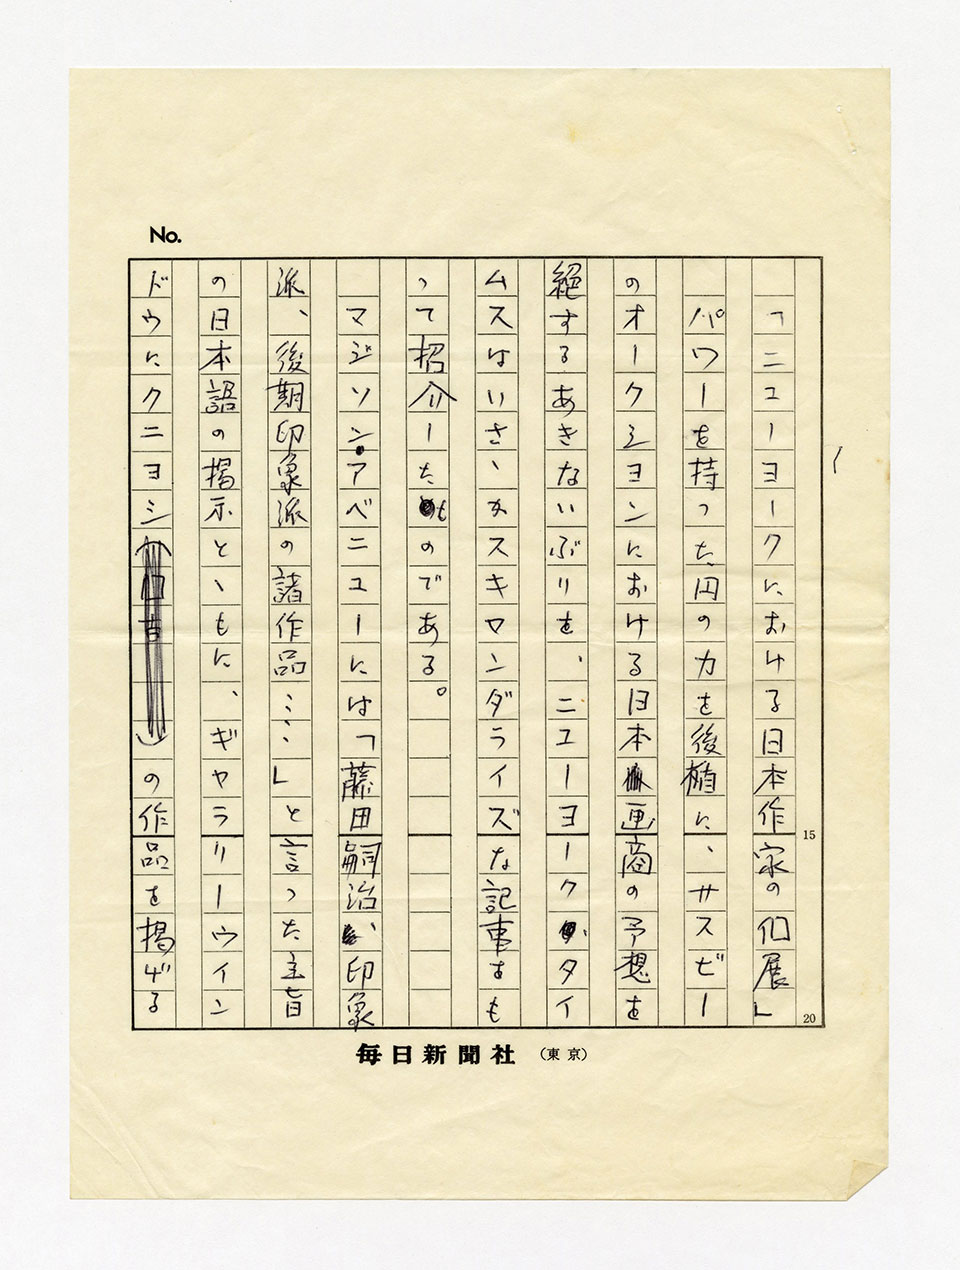 No.
「ニユーヨークにおける日本作家の個展」
パワーを持った円の力を後楯に、サスビー
のオークシヨンにおける日本画商の予想を
絶するあきないぶりを、ニユーヨークタイ
ムスはいさゝかスキヤンダライズな記事をも
って招介したものである。
マジソン・アベニユーには「藤田嗣治、印象
派、後期印象派の諸作品……」と言った主旨
の日本語の掲示とゝもに、ギヤラリーウイン
ドウにクニヨシの作品を掲げる
15
20
毎日新聞社（東京）